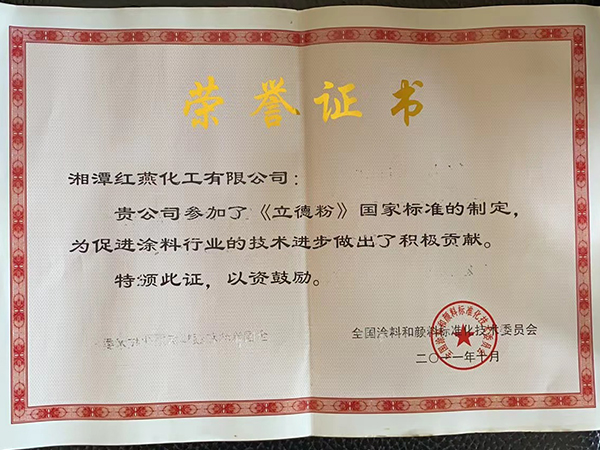 荣誉证书
湘潭红燕化工有限公司：
贵公司参加了《立德粉》国家标准的制定，
为促进涂料行业的技术进步做出了积极贡献。
特颁此证，以资鼓励。
全国涂料和颜料标准化技术委员会
二〇一一年十月